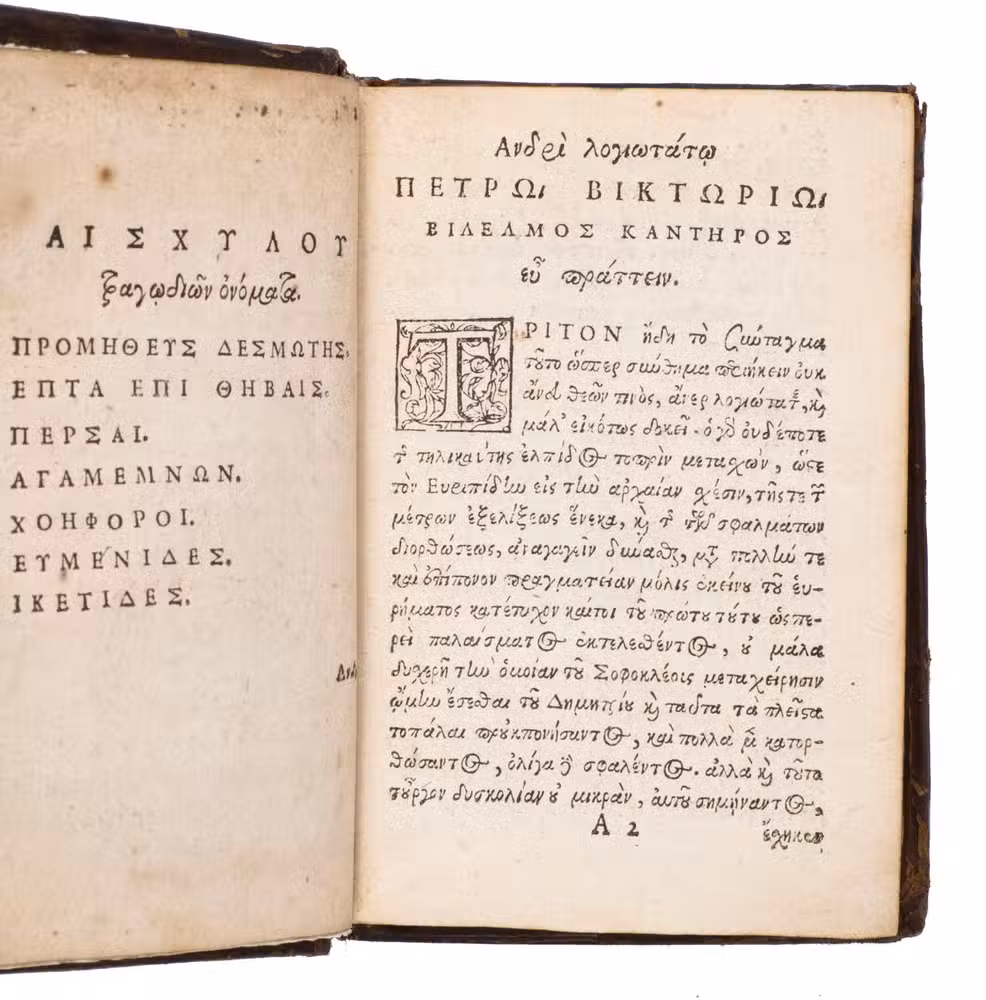 ΑΙΣΧΥΛΟΥ
τραγῳδιῶν ὀνόματα.
ΠΡΟΜΗΘΕΥΣ ΔΕΣΜΩΤΗΣ.
ΕΠΤΑ ΕΠΙ ΘΗΒΑΙΣ.
ΠΕΡΣΑΙ.
ΑΓΑΜΕΜΝΩΝ.
ΧΟΗΦΟΡΟΙ.
ΕΥΜΕΝΙΔΕΣ.
ΙΚΕΤΙΔΕΣ.
Ανδρὶ λογιωτάτῳ
ΠΕΤΡΩι ΒΙΚΤΩΡΙΩι
ΒΙΛΕΛΜΟΣ ΚΑΝΤΗΡΟΣ
εὖ πράττειν.
ΤΡΙΤΟΝ ἤδη τὸ σύνταγμα
τοῦτο ὥσπερ σύνθημα προσήκειν οὐκ
ἄνευ θεῶν τινὸς, ἄνερ λογιώτατε, καὶ
μάλ' εἰκότως δοκεῖ. ὁ γὰρ οὐδέποτε
τῆς τηλικαύτης ἐλπίδος τοπρὶν μετασχὼν, ὥστε
τὸν Ευριπίδην εἰς τὴν αρχαίαν σχέσιν, τῆς τε τῶν
μέτρων ἐξελίξεως ἕνεκα, καὶ τῆς τῶν σφαλμάτων
διορθώσεως, αναγαγεῖν δύνασθαι, μετὰ πολλὴν τε
καὶ ἐπίπονον πραγματείαν μόλις ἐκείνου τοῦ εὑ-
ρήματος κατέτυχον καίτοι τοῦ πρώτου τούτου ὡσπε-
ρεὶ παλαίσματος ἐκτελεσθέντος, οὐ μάλα
δυσχερῆ τὴν ὁμοίαν τοῦ Σοφοκλέους μεταχείρησιν
ᾤμην ἔσεσθαι τοῦ Δημητρίου καὶ ταῦτα τὰ πλεῖστα
τοπάλαι προεκπονήσαντος, καὶ πολλὰ μὲν κατορ-
θώσαντος, ὀλίγα δὲ σφαλέντος. αλλὰ καὶ τοῦτο
τοὖργον δυσκολίαν οὐ μικρὰν, αὐτοῦ σημήναντος,
Α 2